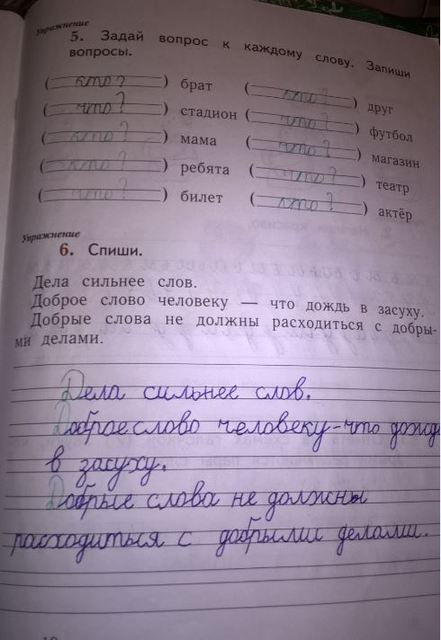 Упражнение
5. Задай вопрос к каждому слову. Запиши
вопросы.
( кто? ) брат ( кто? ) друг
( что? ) стадион ( что? ) футбол
( кто? ) мама ( что? ) магазин
( кто? ) ребята ( что? ) театр
( что? ) билет ( кто? ) актёр
Упражнение
6. Спиши.
Дела сильнее слов.
Доброе слово человеку — что дождь в засуху.
Добрые слова не должны расходиться с добры-
ми делами.
Дела сильнее слов.
Доброе слово человеку-что дождь
в засуху.
Добрые слова не должны
расходиться с добрыми делами.